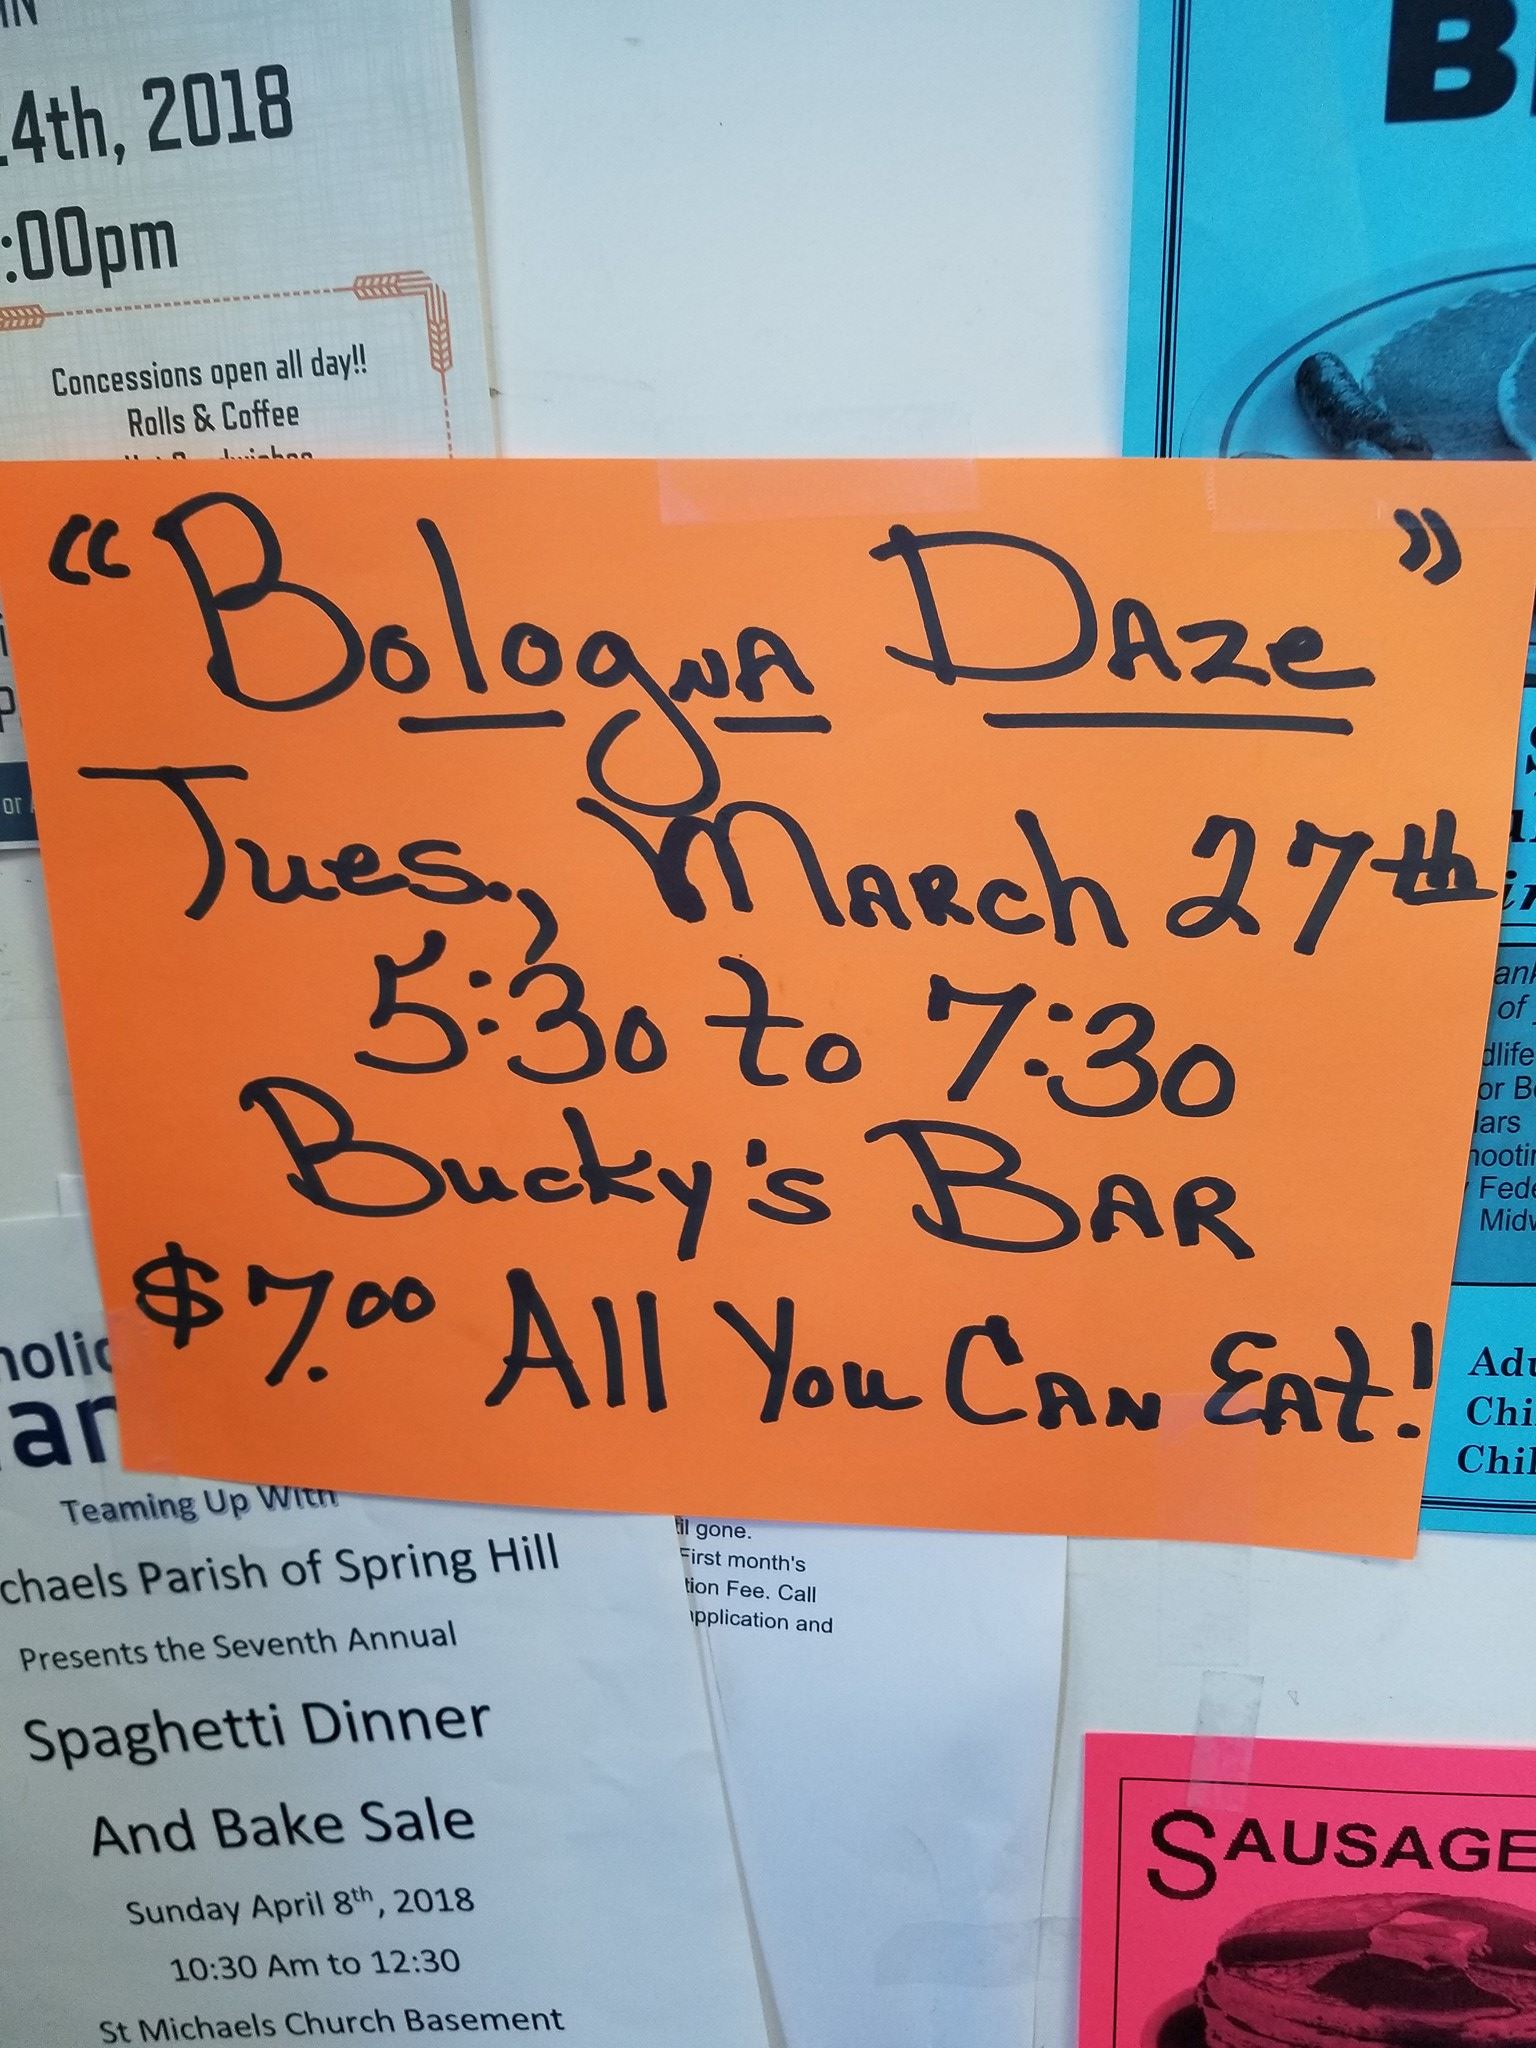 4th, 2018
:00pm
Concessions open all day!!
Rolls & Coffee
"Bologna Daze"
Tues., March 27th
5:30 to 7:30
Bucky's Bar
$7.00 All You Can Eat!
Teaming Up With
chaels Parish of Spring Hill
Presents the Seventh Annual
Spaghetti Dinner
And Bake Sale
Sunday April 8th, 2018
10:30 Am to 12:30
St Michaels Church Basement
gone.
First month's
tion Fee. Call
application and
of
dlife
or B
lars
Fede
Midw
Adu
Chi
Chil
SAUSAGE